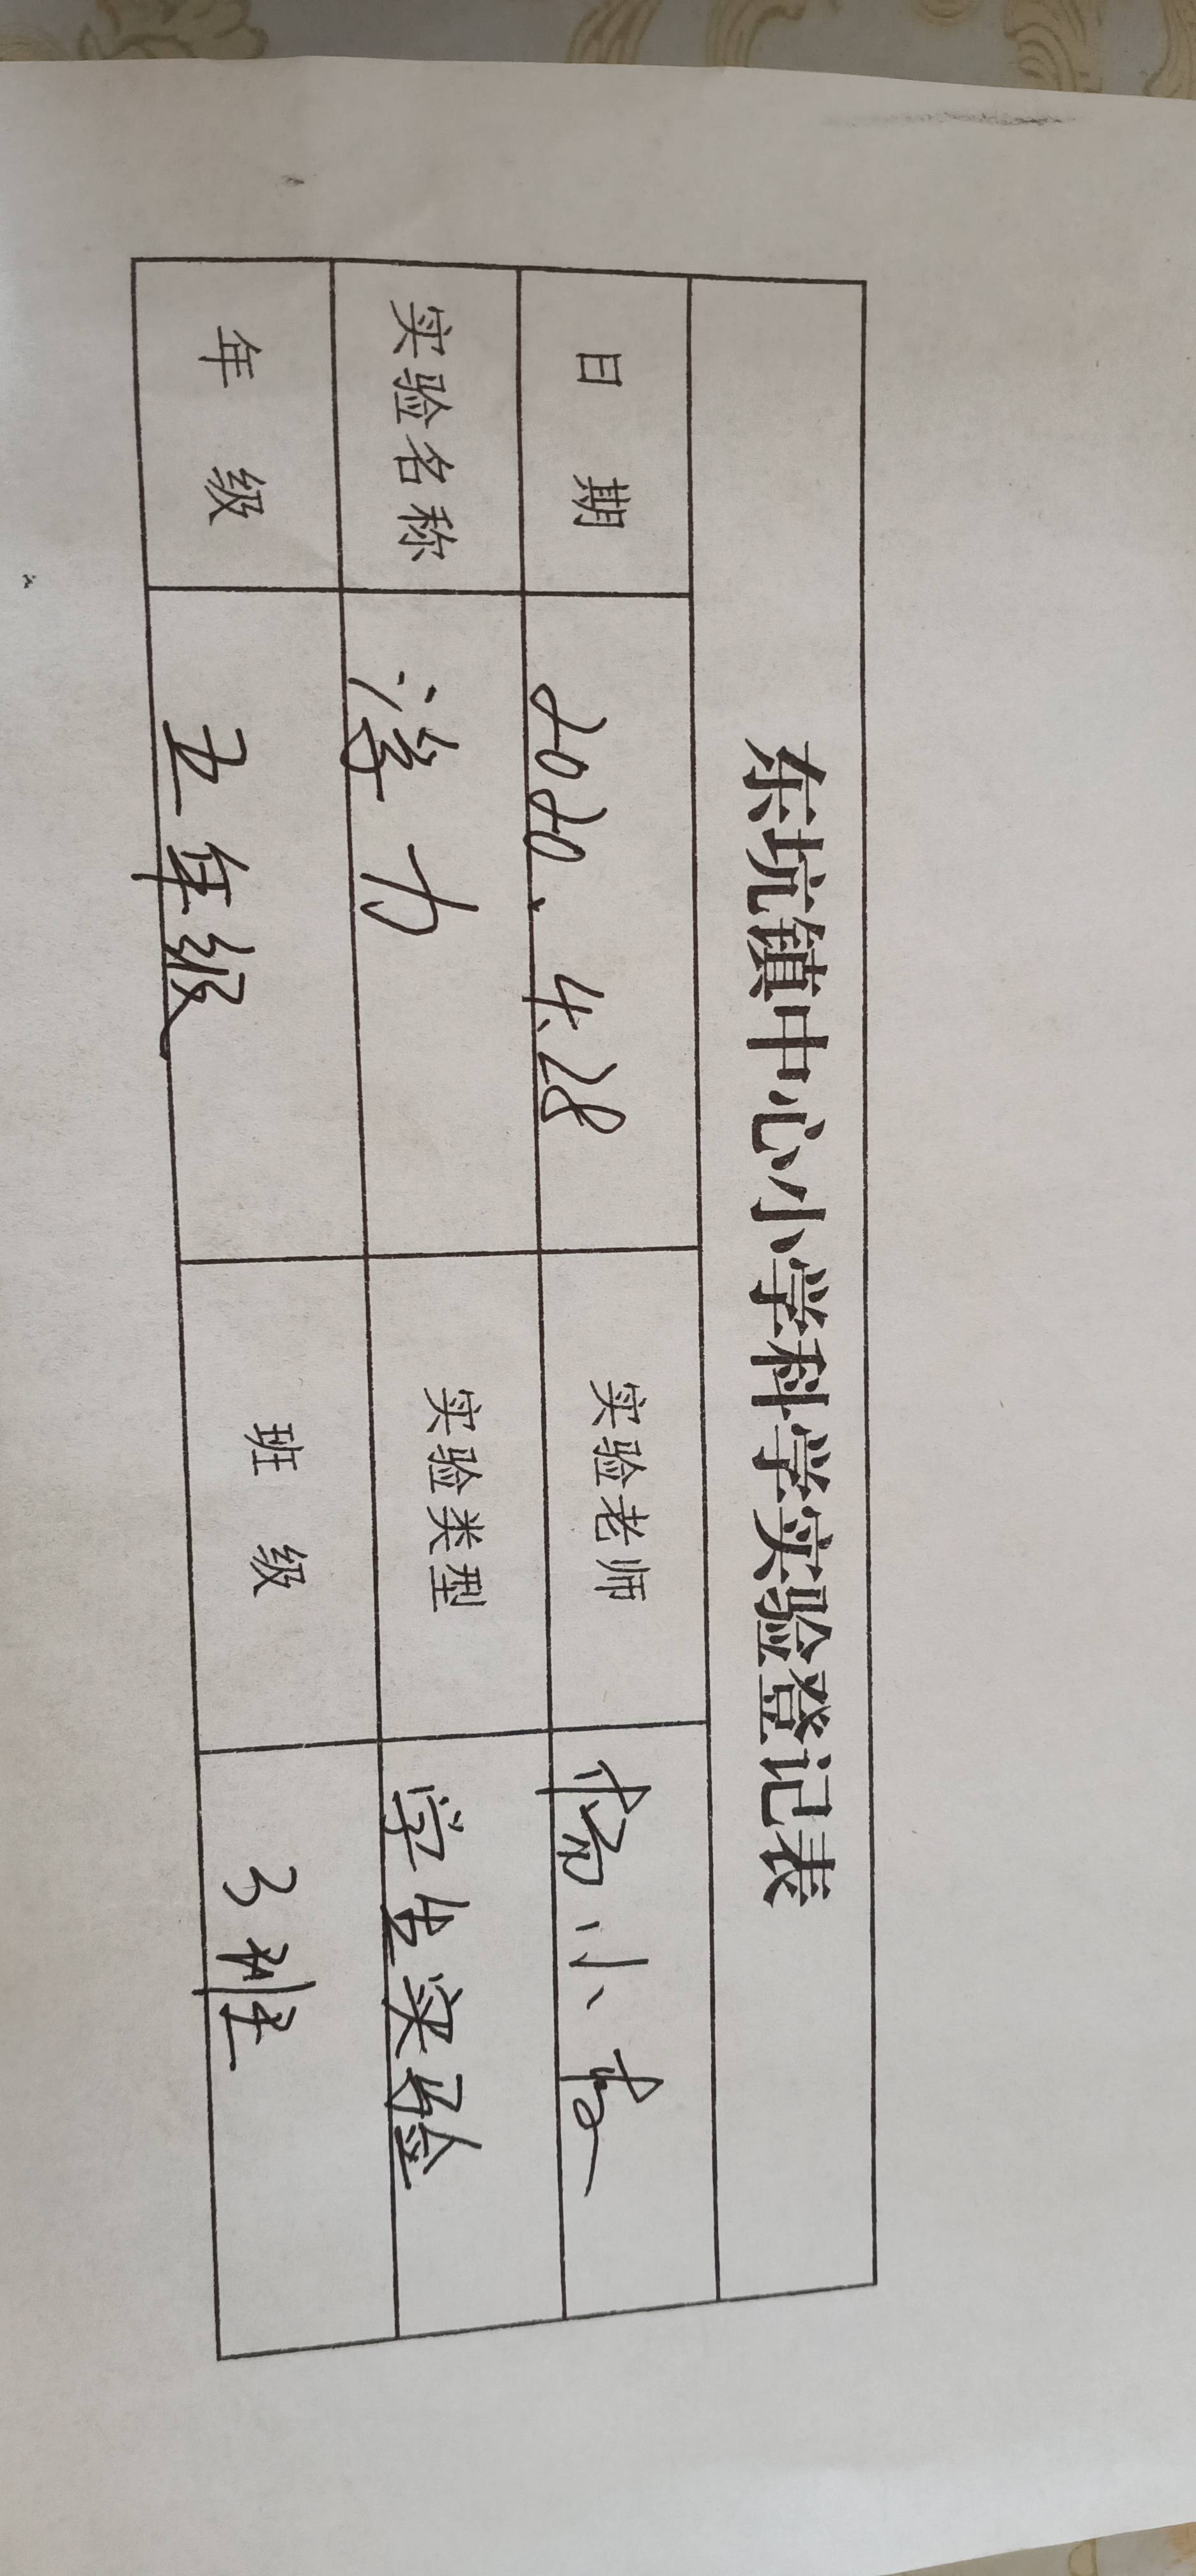 东坑镇中心小学科学实验登记表
日 期 2020.4.28 实验老师 小
实验名称 浮力 实验类型 学生实验
年 级 五年级 班 级 3班